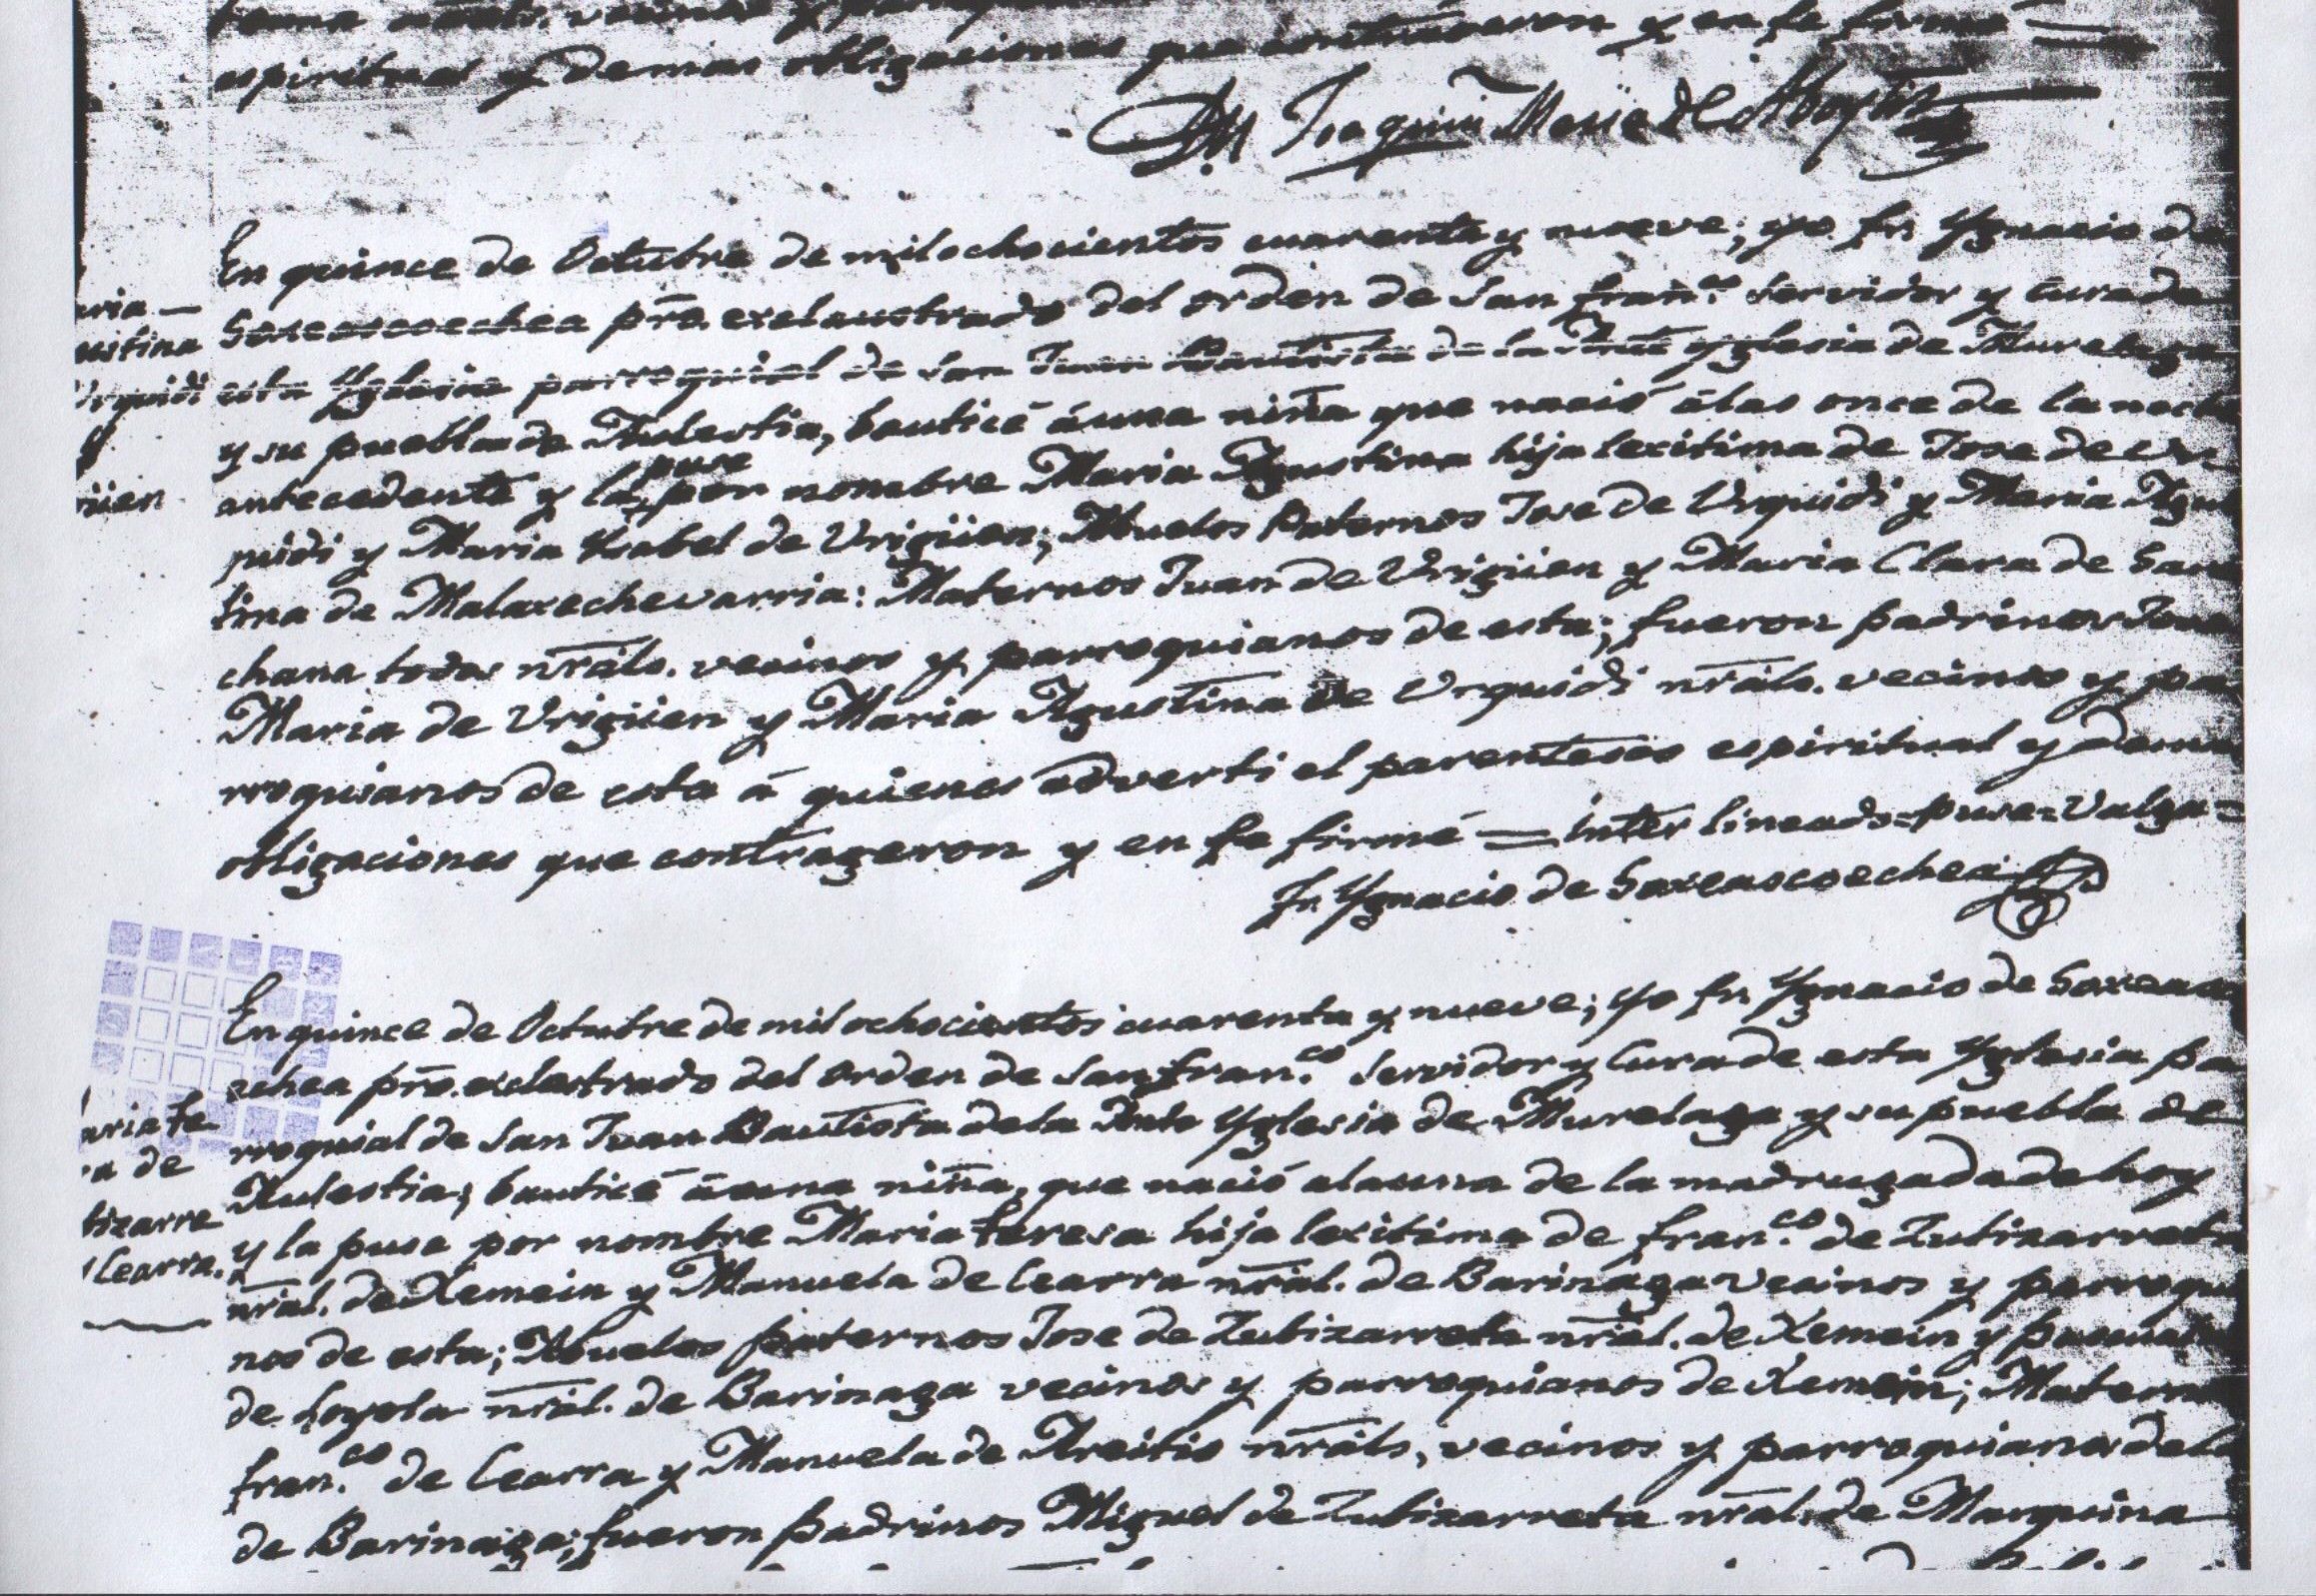 espiritual y demas obligaciones que contrageron y en fe firmé =
Dn Joaquin Maria de
En quince de Octubre de mil ochocientos cuarenta y nueve; yo fr. Ygnacio de
Goxeascoechea pro. exclaustrado del orden de San franco. servidor y cura de
esta Yglesia parroquial de San Juan Bautista de la Ante yglesia de Murelaga
y su puebla de Aulestia, bauticé á una niña que nació á las once de la noche
antecedente y la puse por nombre Maria Agustina hija lexitima de Jose de Ur
quidi y Maria Ysabel de Urigüen; Abuelos Paternos Jose de Urquidi y Maria Agus
tina de Malaxechevarria: Maternos Juan de Urigüen y Maria Clara de
chana todos nrals. vecinos y parroquianos de esta; fueron padrinos
Maria de Urigüen y Maria Agustina de Urquidi nrals. vecinos y pa
rroquianos de esta á quienes adverti el parentesco espiritual y demas
obligaciones que contrageron y en fe firmé = inter lineado = puse = Valga =
Fr. Ygnacio de Goxeascoechea
aria
ustina
Urquidi
y
güen
En quince de Octubre de mil ochocientos cuarenta y nueve; yo fr. Ygnacio de Goxeasco
echea pro. exclastrado del orden de San franco. servidor y Cura de esta Yglesia pa
rroquial de San Juan Bautista de la Ante Yglesia de Murelaga y su puebla de
Aulestia; bauticé á una niña, que nació a la una de la madrugada de hoy
y la puse por nombre Maria teresa hija lexitima de franco. de Zubizarreta
nral. de Xemein y Manuela de Cearra nral. de Barinaga vecinos y parroquia
nos de esta; Abuelos paternos Jose de Zubizarreta nral. de Xemein y pascuala
de Loyola nral. de Barinaga vecinos y parroquianos de Xemein; Maternos
franco. de Cearra y Manuela de Areitio nrals, vecinos y parroquianos dela
de Barinaga; fueron padrinos Miguel de Zubizarreta nral. de Marquina
aria te
a de
bizarre
Cearra.